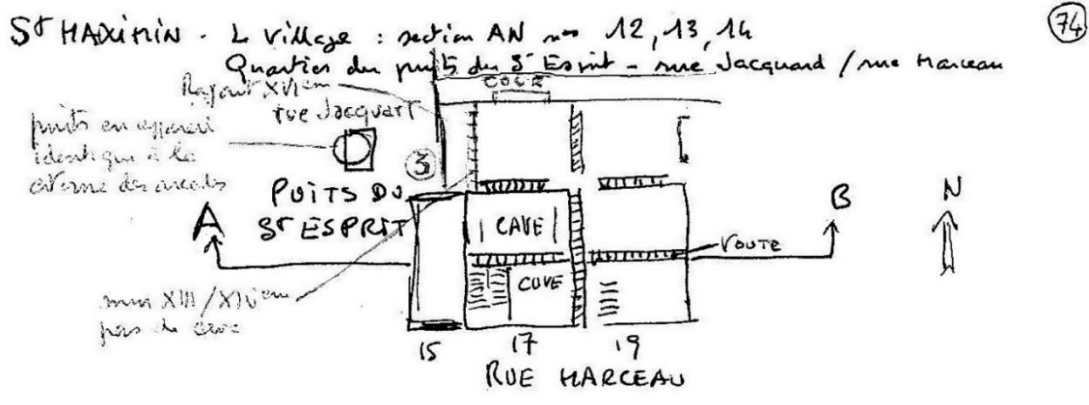 St MAXIMIN - Le Village : section AN nos 12, 13, 14
74
Quartier du puits du St Esprit - rue Jacquard / rue Marceau
Rajout XVIem
COUR
rue Jacquart
puits en appareil
identique à la
citerne des arcades
3
PUITS DU
St ESPRIT
A
CAVE
B
N
VOUTE
CUVE
murs XIII/XIVem
pas de cave
15
17
19
RUE MARCEAU